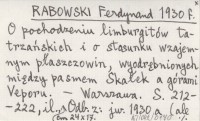 RABOWSKI Ferdynand 1930 f.
O pochodzeniu limburgitów ta-
trzańskich i o stosunku wzajem-
nym płaszczowin, wyodrębnionych
między pasmem Skałek a górami
Veporu. – Warszawa. S. 212-
-222, il., Odb. z: jw. 1930 n. (ale
bm 24x17.